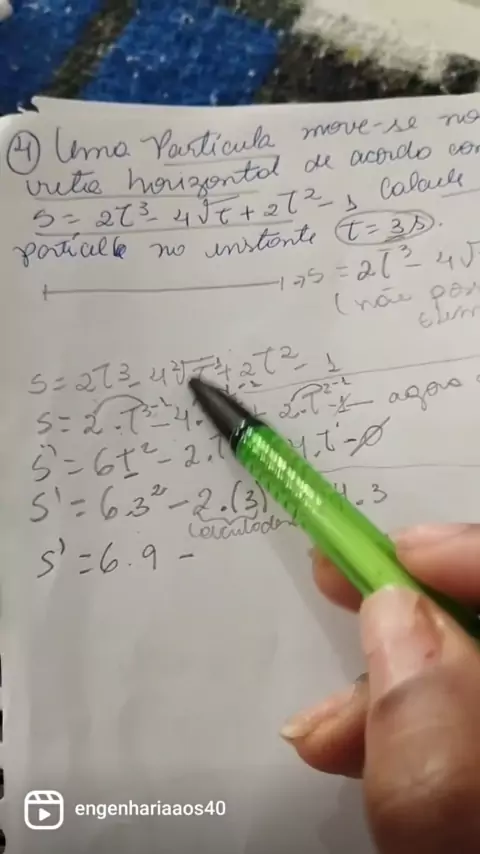 4) Uma Partícula move-se no
reta horizontal de acordo com
S = 2t³ - 4√t + 2t² - 1 Calcule
partícula no instante t = 3s.
→ S = 2t³ - 4√
(não
S = 2t³ - 4²√t¹ + 2t² - 1
S = 2.t³⁻¹ - 4. 2.t²⁻¹ - 1 agora
S' = 6t² - 2.t 4.t¹ - 0
S' = 6.3² - 2.(3) 4.3
calculadora
S' = 6.9 -
engenhariaaos40